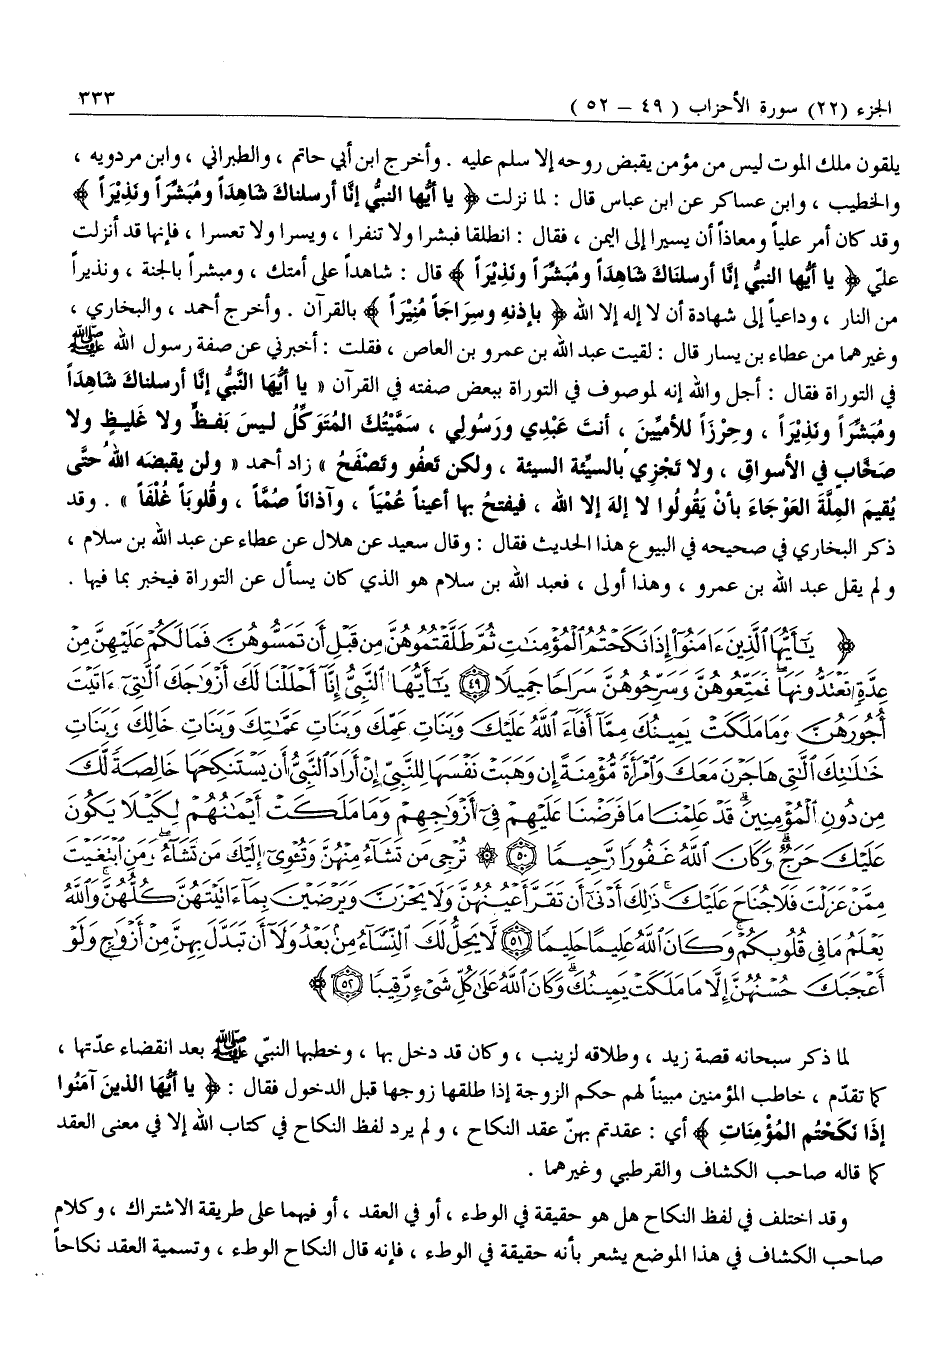 الجزء (٢٢) سورة الأحزاب ( ٤٩ – ٥٢ ) ٣٣٣
يلقون ملك الموت ليس من مؤمن يقبض روحه إلا سلم عليه . وأخرج ابن أبي حاتم ، والطبراني ، وابن مردويه ،
والخطيب ، وابن عساكر عن ابن عباس قال : لما نزلت ﴿ يا أيُّها النبيُّ إنَّا أرسلناك شَاهِدَاً ومُبَشِّرَاً ونَذِيْرَاً ﴾
وقد كان أمر علياً ومعاذاً أن يسيرا إلى اليمن ، فقال : انطلقا فبشرا ولا تنفرا ، ويسرا ولا تعسرا ، فإنها قد أنزلت
عليّ ﴿ يا أيُّها النبيُّ إنَّا أرسلنَاكَ شَاهِدَاً ومُبَشِّرَاً ونَذِيْرَاً ﴾ قال : شاهداً على أمتك ، ومبشراً بالجنة ، ونذيراً
من النار ، وداعياً إلى شهادة أن لا إله إلا الله ﴿ بإذنهِ وسِرَاجَاً مُنِيْرَاً ﴾ بالقرآن . وأخرج أحمد ، والبخاري ،
وغيرهما من عطاء بن يسار قال : لقيت عبد الله بن عمرو بن العاص ، فقلت : أخبرني عن صفة رسول الله ﷺ
في التوراة فقال : أجل والله إنه لموصوف في التوراة ببعض صفته في القرآن « يا أيُّهَا النَّبيُّ إنَّا أرسلناكَ شاهِدَاً
ومُبَشِّرَاً ونَذِيْرَاً ، وحِرْزَاً للأميِّينَ ، أنتَ عَبْدِي ورَسُولي ، سَمَّيْتُكَ المُتَوَكِّلُ ليسَ بَفظٍّ ولا غَليظٍ ولا
صَخَّابٍ في الأسواقِ ، ولا تَجْزِي بالسيِّئة السيئة ، ولكن تَعفُو وتَصْفَحُ » زاد أحمد « ولن يقبضَه اللهُ حتَّى
يُقيمَ المِلَّةَ العَوْجَاءَ بأنْ يَقُولُوا لا إلهَ إلا الله ، فيفتحُ بها أعيناً عُمْيَاً ، وآذاناً صُمَّاً ، وقُلوباً غُلْفَاً » . وقد
ذكر البخاري في صحيحه في البيوع هذا الحديث فقال : وقال سعيد عن هلال عن عطاء عن عبد الله بن سلام ،
ولم يقل عبد الله بن عمرو ، وهذا أولى ، فعبد الله بن سلام هو الذي كان يسأل عن التوراة فيخبر بما فيها .
﴿ يَٰٓأَيُّهَا ٱلَّذِينَ ءَامَنُوٓا۟ إِذَا نَكَحْتُمُ ٱلْمُؤْمِنَٰتِ ثُمَّ طَلَّقْتُمُوهُنَّ مِن قَبْلِ أَن تَمَسُّوهُنَّ فَمَا لَكُمْ عَلَيْهِنَّ مِنْ
عِدَّةٍ تَعْتَدُّونَهَا فَمَتِّعُوهُنَّ وَسَرِّحُوهُنَّ سَرَاحًا جَمِيلًا ٤٩ يَٰٓأَيُّهَا ٱلنَّبِيُّ إِنَّآ أَحْلَلْنَا لَكَ أَزْوَٰجَكَ ٱلَّٰتِىٓ ءَاتَيْتَ
أُجُورَهُنَّ وَمَا مَلَكَتْ يَمِينُكَ مِمَّآ أَفَآءَ ٱللَّهُ عَلَيْكَ وَبَنَاتِ عَمِّكَ وَبَنَاتِ عَمَّٰتِكَ وَبَنَاتِ خَالِكَ وَبَنَاتِ
خَٰلَٰتِكَ ٱلَّٰتِى هَاجَرْنَ مَعَكَ وَٱمْرَأَةً مُّؤْمِنَةً إِن وَهَبَتْ نَفْسَهَا لِلنَّبِيِّ إِنْ أَرَادَ ٱلنَّبِيُّ أَن يَسْتَنكِحَهَا خَالِصَةً لَّكَ
مِن دُونِ ٱلْمُؤْمِنِينَ ۗ قَدْ عَلِمْنَا مَا فَرَضْنَا عَلَيْهِمْ فِىٓ أَزْوَٰجِهِمْ وَمَا مَلَكَتْ أَيْمَٰنُهُمْ لِكَيْلَا يَكُونَ
عَلَيْكَ حَرَجٌ ۗ وَكَانَ ٱللَّهُ غَفُورًا رَّحِيمًا ٥٠ ۞ تُرْجِى مَن تَشَآءُ مِنْهُنَّ وَتُـْٔوِىٓ إِلَيْكَ مَن تَشَآءُ ۖ وَمَنِ ٱبْتَغَيْتَ
مِمَّنْ عَزَلْتَ فَلَا جُنَاحَ عَلَيْكَ ۚ ذَٰلِكَ أَدْنَىٰٓ أَن تَقَرَّ أَعْيُنُهُنَّ وَلَا يَحْزَنَّ وَيَرْضَيْنَ بِمَآ ءَاتَيْتَهُنَّ كُلُّهُنَّ ۚ وَٱللَّهُ
يَعْلَمُ مَا فِى قُلُوبِكُمْ ۚ وَكَانَ ٱللَّهُ عَلِيمًا حَلِيمًا ٥١ لَّا يَحِلُّ لَكَ ٱلنِّسَآءُ مِنۢ بَعْدُ وَلَآ أَن تَبَدَّلَ بِهِنَّ مِنْ أَزْوَٰجٍ وَلَوْ
أَعْجَبَكَ حُسْنُهُنَّ إِلَّا مَا مَلَكَتْ يَمِينُكَ ۗ وَكَانَ ٱللَّهُ عَلَىٰ كُلِّ شَىْءٍ رَّقِيبًا ٥٢ ﴾
لما ذكر سبحانه قصة زيد ، وطلاقه لزينب ، وكان قد دخل بها ، وخطبها النبيّ ﷺ بعد انقضاء عدّتها ،
كما تقدّم ، خاطب المؤمنين مبيناً لهم حكم الزوجة إذا طلقها زوجها قبل الدخول فقال : ﴿ يا أيُّهَا الذينَ آمَنُوا
إذَا نَكَحْتُم المُؤْمِنَاتِ ﴾ أي : عقدتم بهنّ عقد النكاح ، ولم يرد لفظ النكاح في كتاب الله إلا في معنى العقد
كما قاله صاحب الكشاف والقرطبي وغيرهما .
وقد اختلف في لفظ النكاح هل هو حقيقة في الوطء ، أو في العقد ، أو فيهما على طريقة الاشتراك ، وكلام
صاحب الكشاف في هذا الموضع يشعر بأنه حقيقة في الوطء ، فإنه قال النكاح الوطء ، وتسمية العقد نكاحاً